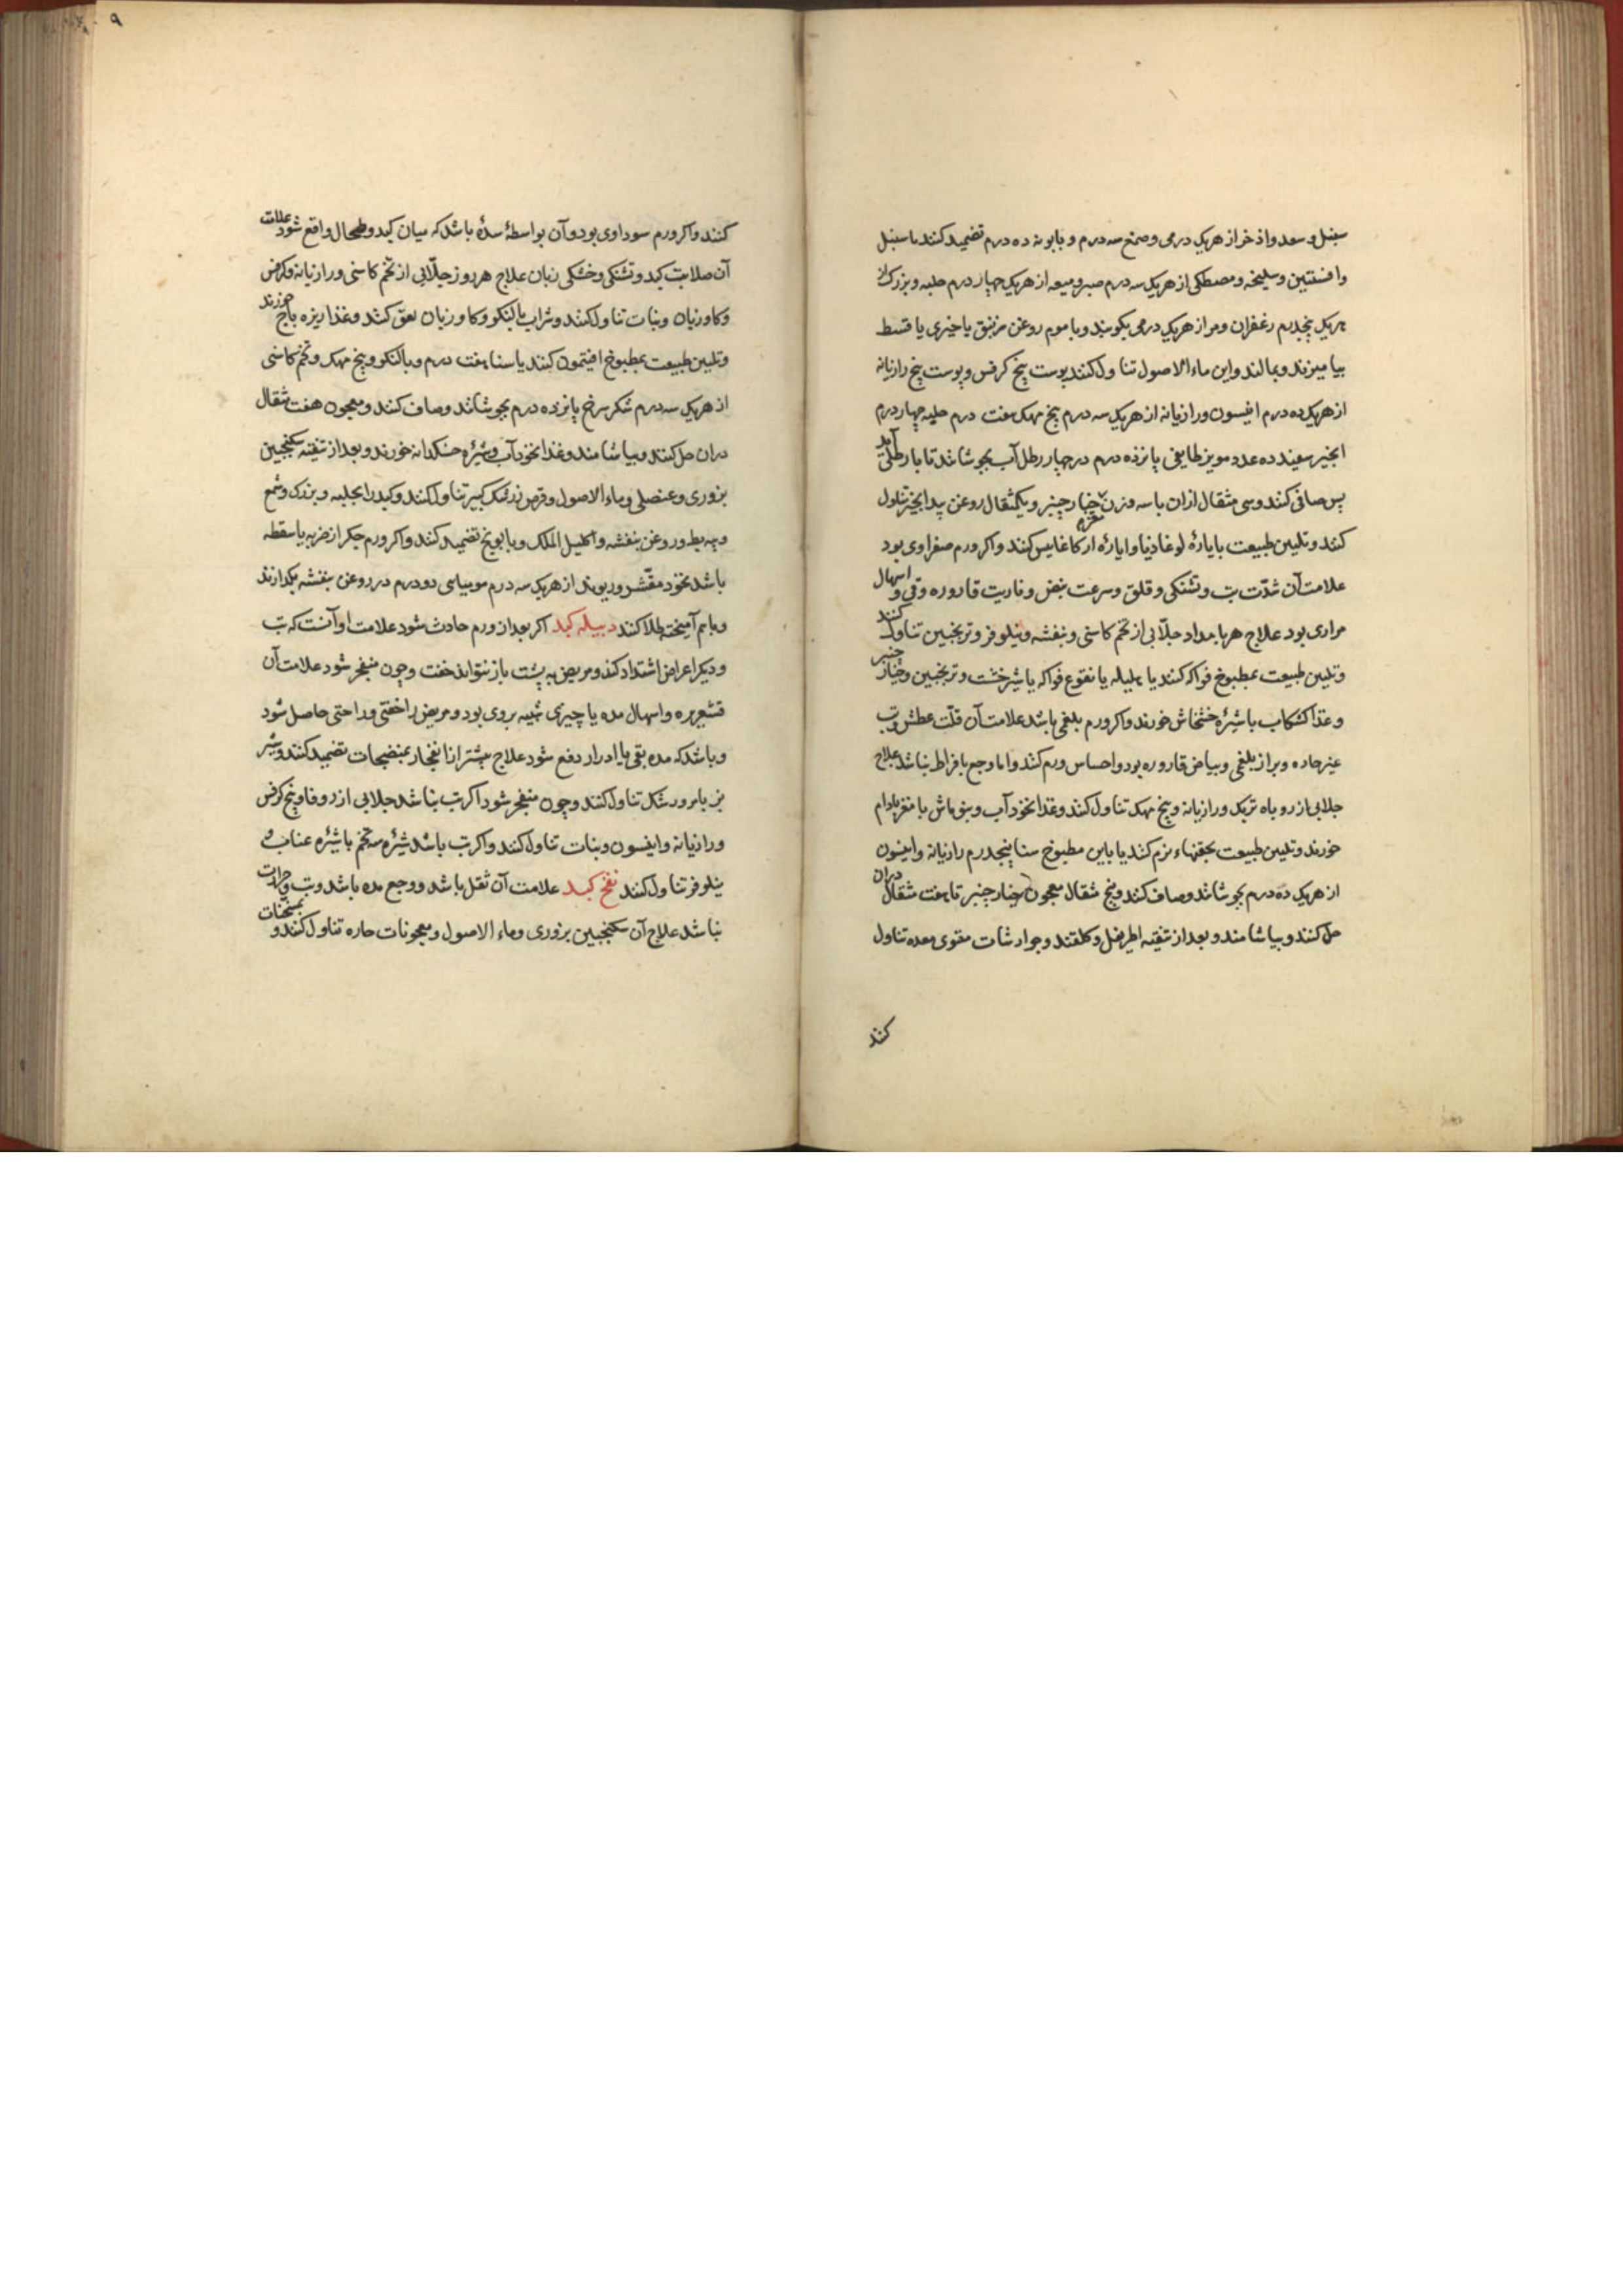 سنبل و سعد و اذخر از هریک درمی و صمغ سه درم و بابونه ده درم تضمید کنند با سنبل
وافسنتین و سلیخه و مصطکی از هریک سه درم صبر و میعه از هریک چهار درم حلبه و بزرک از
هریک پنجدرم زعفران و مر از هریک درمی بکوبند و با موم روغن زنبق یا خیری یا قسط
بیامیزند و بمالند و این ماء الاصول تناول کنند پوست بیخ کرفس و پوست بیخ رازیانه
از هریک ده درم انیسون و رازیانه از هریک سه درم بیخ مهک هفت درم حلبه چهار درم
انجیر سفید ده عدد مویز طایفی پانزده درم در چهار رطل آب بجوشانند تا با رطلی آید
پس صافی کنند و سی مثقال ازان با سه وزن خیار چنبر و یکمثقال روغن بید انجیر تناول
کنند و تلیین طبیعت بایارۀ لوغاذیا و ایارۀ ارکاغانیس کنند و اکر ورم صفراوی بود
علامت آن شدّت تب و تشنکی و قلق و سرعت نبض و ناریت قاروره و قی و اسهال
مراری بود علاج هر بامداد جلّابی از تخم کاسنی و بنفشه و نیلوفر و ترنجبین تناول کنند
و تلیین طبیعت بمطبوخ فواکه کنند یا هلیله یا نقوع فواکه یا شیرخشت و ترنجبین و خیار چنبر
و غذا کشکاب با شیرۀ خشخاش خورند و اکر ورم بلغمی باشد علامت آن قلّت عطش و تب
غیر حاده و براز بلغمی و بیاض قاروره بود و احساس ورم کنند و اما وجع بافراط نباشد علاج
جلابی از روباه تربک و رازیانه و بیخ مهک تناول کنند و غذا نخودآب و بنو ماش با مغز بادام
خورند و تلیین طبیعت بحقنهاء نرم کنند یا باین مطبوخ سنا پنجدرم رازیانه و انیسون
از هریک ده درم بجوشانند و صاف کنند و پنج مثقال معجون خیار چنبر تا هفت مثقال دران
حل کنند و بیاشامند و بعد از تنقیه اطریفل و کلقند و جوارشات مقوی معده تناول
کنند
کنند و اکر ورم سوداوی بود و آن بواسطۀ سدۀ باشد که میان کبد و طحال واقع شود علامت
آن صلابت کبد و تشنکی و خشکی زبان علاج هر روز جلّابی از تخم کاسنی و رازیانه و کرفس
و کاوزبان و نبات تناول کنند و شراب بالنکو و کاوزبان لعق کنند و غذا ریزه باج خورند
و تلیین طبیعت بمطبوخ افتیمون کنند یا سنا هفت درم و بالنکو و بیخ مهک و تخم کاسنی
از هریک سه درم شکر سرخ پانزده درم بجوشانند و صاف کنند و معجون هفت مثقال
دران حل کنند و بیاشامند و غذا نخودآب و شیرۀ خسکدانه خورند و بعد از تنقیه سکنجبین
بزوری و عنصلی و ماء الاصول و قرص زرشک کبیر تناول کنند و کبد را بحلبه و بزرک و شمع
و پیه بط و روغن بنفشه و اکلیل الملک و بابونج تضمید کنند و اکر ورم جکر از ضربه یا سقطه
باشد نخود مقشّر و ریوند از هریک سه درم مومیایی دو درم در روغن بنفشه بکدازند
و باهم آمیخته طلا کنند دبیله کبد اکر بعد از ورم حادث شود علامت او آنست که تب
و دیکر اعراض اشتداد کند و مریض به پشت باز نتواند خفت و چون منفجر شود علامت آن
قشعریره و اسهال مده یا چیزی شبیه بروی بود و مریض را خفتی و راحتی حاصل شود
و باشد که مده بقی یا ادرار دفع شود علاج پیشتر از انفجار بمنضجات تضمید کنند و شیر
بز با مرور شکر تناول کنند و چون منفجر شود اکر تب نباشد جلابی از زوفا و بیخ کرفس
و رازیانه و انیسون و نبات تناول کنند و اکر تب باشد شیرۀ سه تخم با شیرۀ عناب و
نیلوفر تناول کنند نفخ کبد علامت آن ثقل باشد و وجع مده باشد و تب و حرارت
نباشد علاج آن سکنجبین بزوری و ماء الاصول و معجونات حاره تناول کنند و بمسخنات